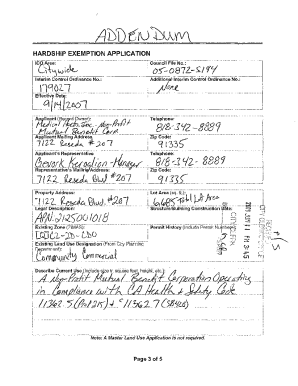 ADDENDUM
HARDSHIP EXEMPTION APPLICATION
ICO Area: Council File No.:
Citywide 05-0872-S194
Interim Control Ordinance No.: Additional Interim Control Ordinance No.:
179027 None
Effective Date:
9/14/2007
Applicant (Record Owner): Telephone:
Medical Non-Profit 818-342-8889
Mutual Benefit Corp
Applicant Mailing Address Zip Code:
7122 Reseda #207 91335
Applicant's Representative: Telephone:
Gevork - Manager 818-342-8889
Representative's Mailing/Address: Zip Code:
7122 Reseda Blvd #207 91335
Property Address: Lot Area (sq. ft.):
7122 Reseda Blvd. #207 Lot Area
Legal Description: Structure/Building Construction Date:
APN: 2125001018
Existing Zone: Permit History (Include Permit Numbers):
Existing Land Use Designation (From City Planning Department):
Community Commercial
Describe Current Use (include size in square feet, height, etc.):
A Non-Profit Mutual Benefit Corporation Operating
in Compliance with CA Health & Safety Code
11362.5 (Prop 215) + 11362.7 (SB420)
Note: A Master Land Use Application is not required.
Page 3 of 5